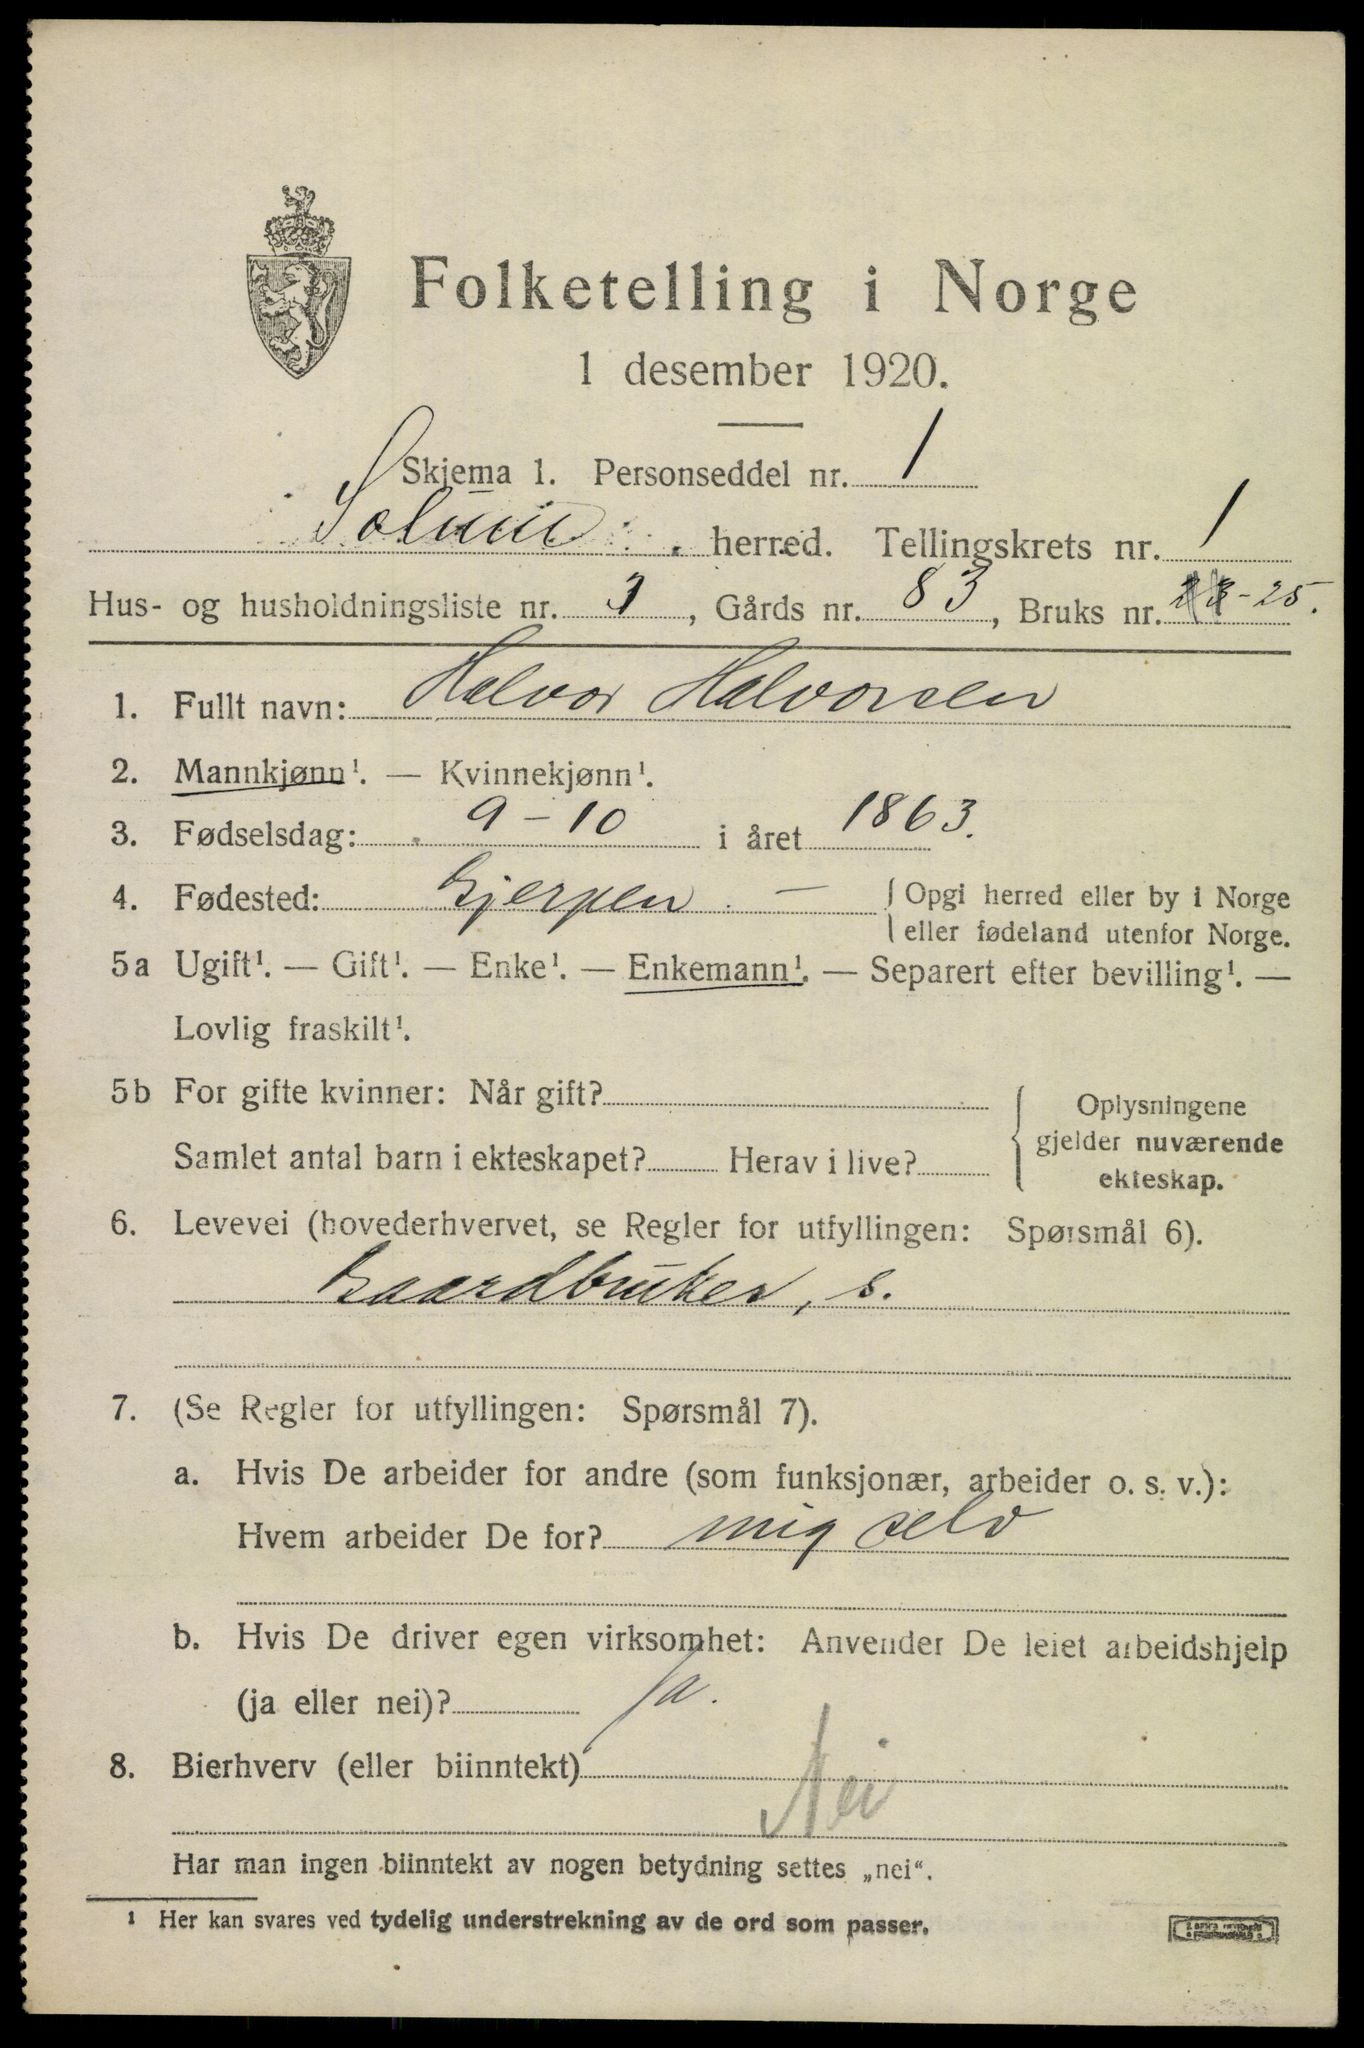 Folketelling i Norge
1 desember 1920.
Skjema 1. Personseddel nr. 1
Solum herred. Tellingskrets nr. 1
Hus- og husholdningsliste nr. 1, Gårds nr. 83, Bruks nr. -25.
1. Fullt navn: Halvor Halvorsen
2. Mannkjønn¹. — Kvinnekjønn¹.
3. Fødselsdag: 9-10 i året 1863.
4. Fødested: Gjerpen — { Opgi herred eller by i Norge
eller fødeland utenfor Norge.
5a Ugift¹. — Gift¹. — Enke¹. — Enkemann¹. — Separert efter bevilling¹. —
Lovlig fraskilt¹.
5b For gifte kvinner: Når gift?
Samlet antal barn i ekteskapet? Herav i live?
Oplysningene
gjelder nuværende
ekteskap.
6. Levevei (hovederhvervet, se Regler for utfyllingen: Spørsmål 6).
Gaardbruker, s.
7. (Se Regler for utfyllingen: Spørsmål 7).
a. Hvis De arbeider for andre (som funksjonær, arbeider o. s. v.):
Hvem arbeider De for? mig selv
b. Hvis De driver egen virksomhet: Anvender De leiet arbeidshjelp
(ja eller nei)? Ja.
8. Bierhverv (eller biinntekt)
Nei
Har man ingen biinntekt av nogen betydning settes „nei“.
¹ Her kan svares ved tydelig understrekning av de ord som passer.